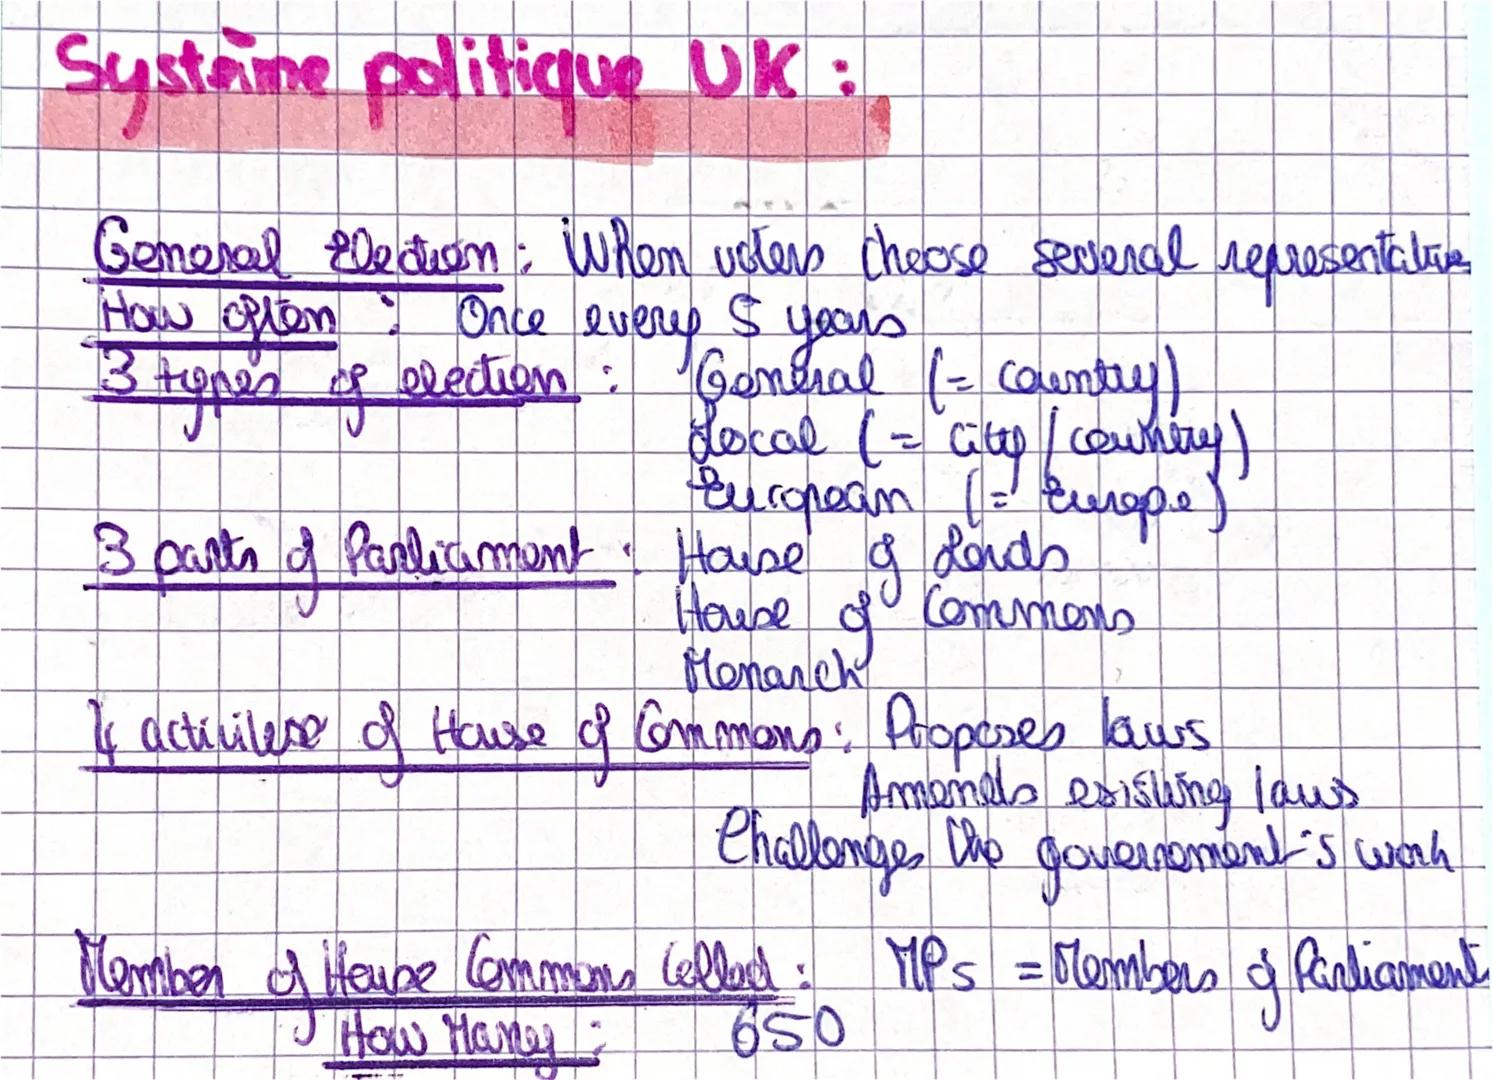 Système politique UK :
General Election : When voters choose several representative
How often : Once every 5 years
3 types of election : General (= country)
Local (= city / country)
European (= Europe)
3 parts of Parliament : House of Lords
House of Commons
Monarch
4 activities of House of Commons : Proposes laws
Amends existing laws
Challenges the government's work
Member of House Commons Called : MPs = Members of Parliament
How Many : 650